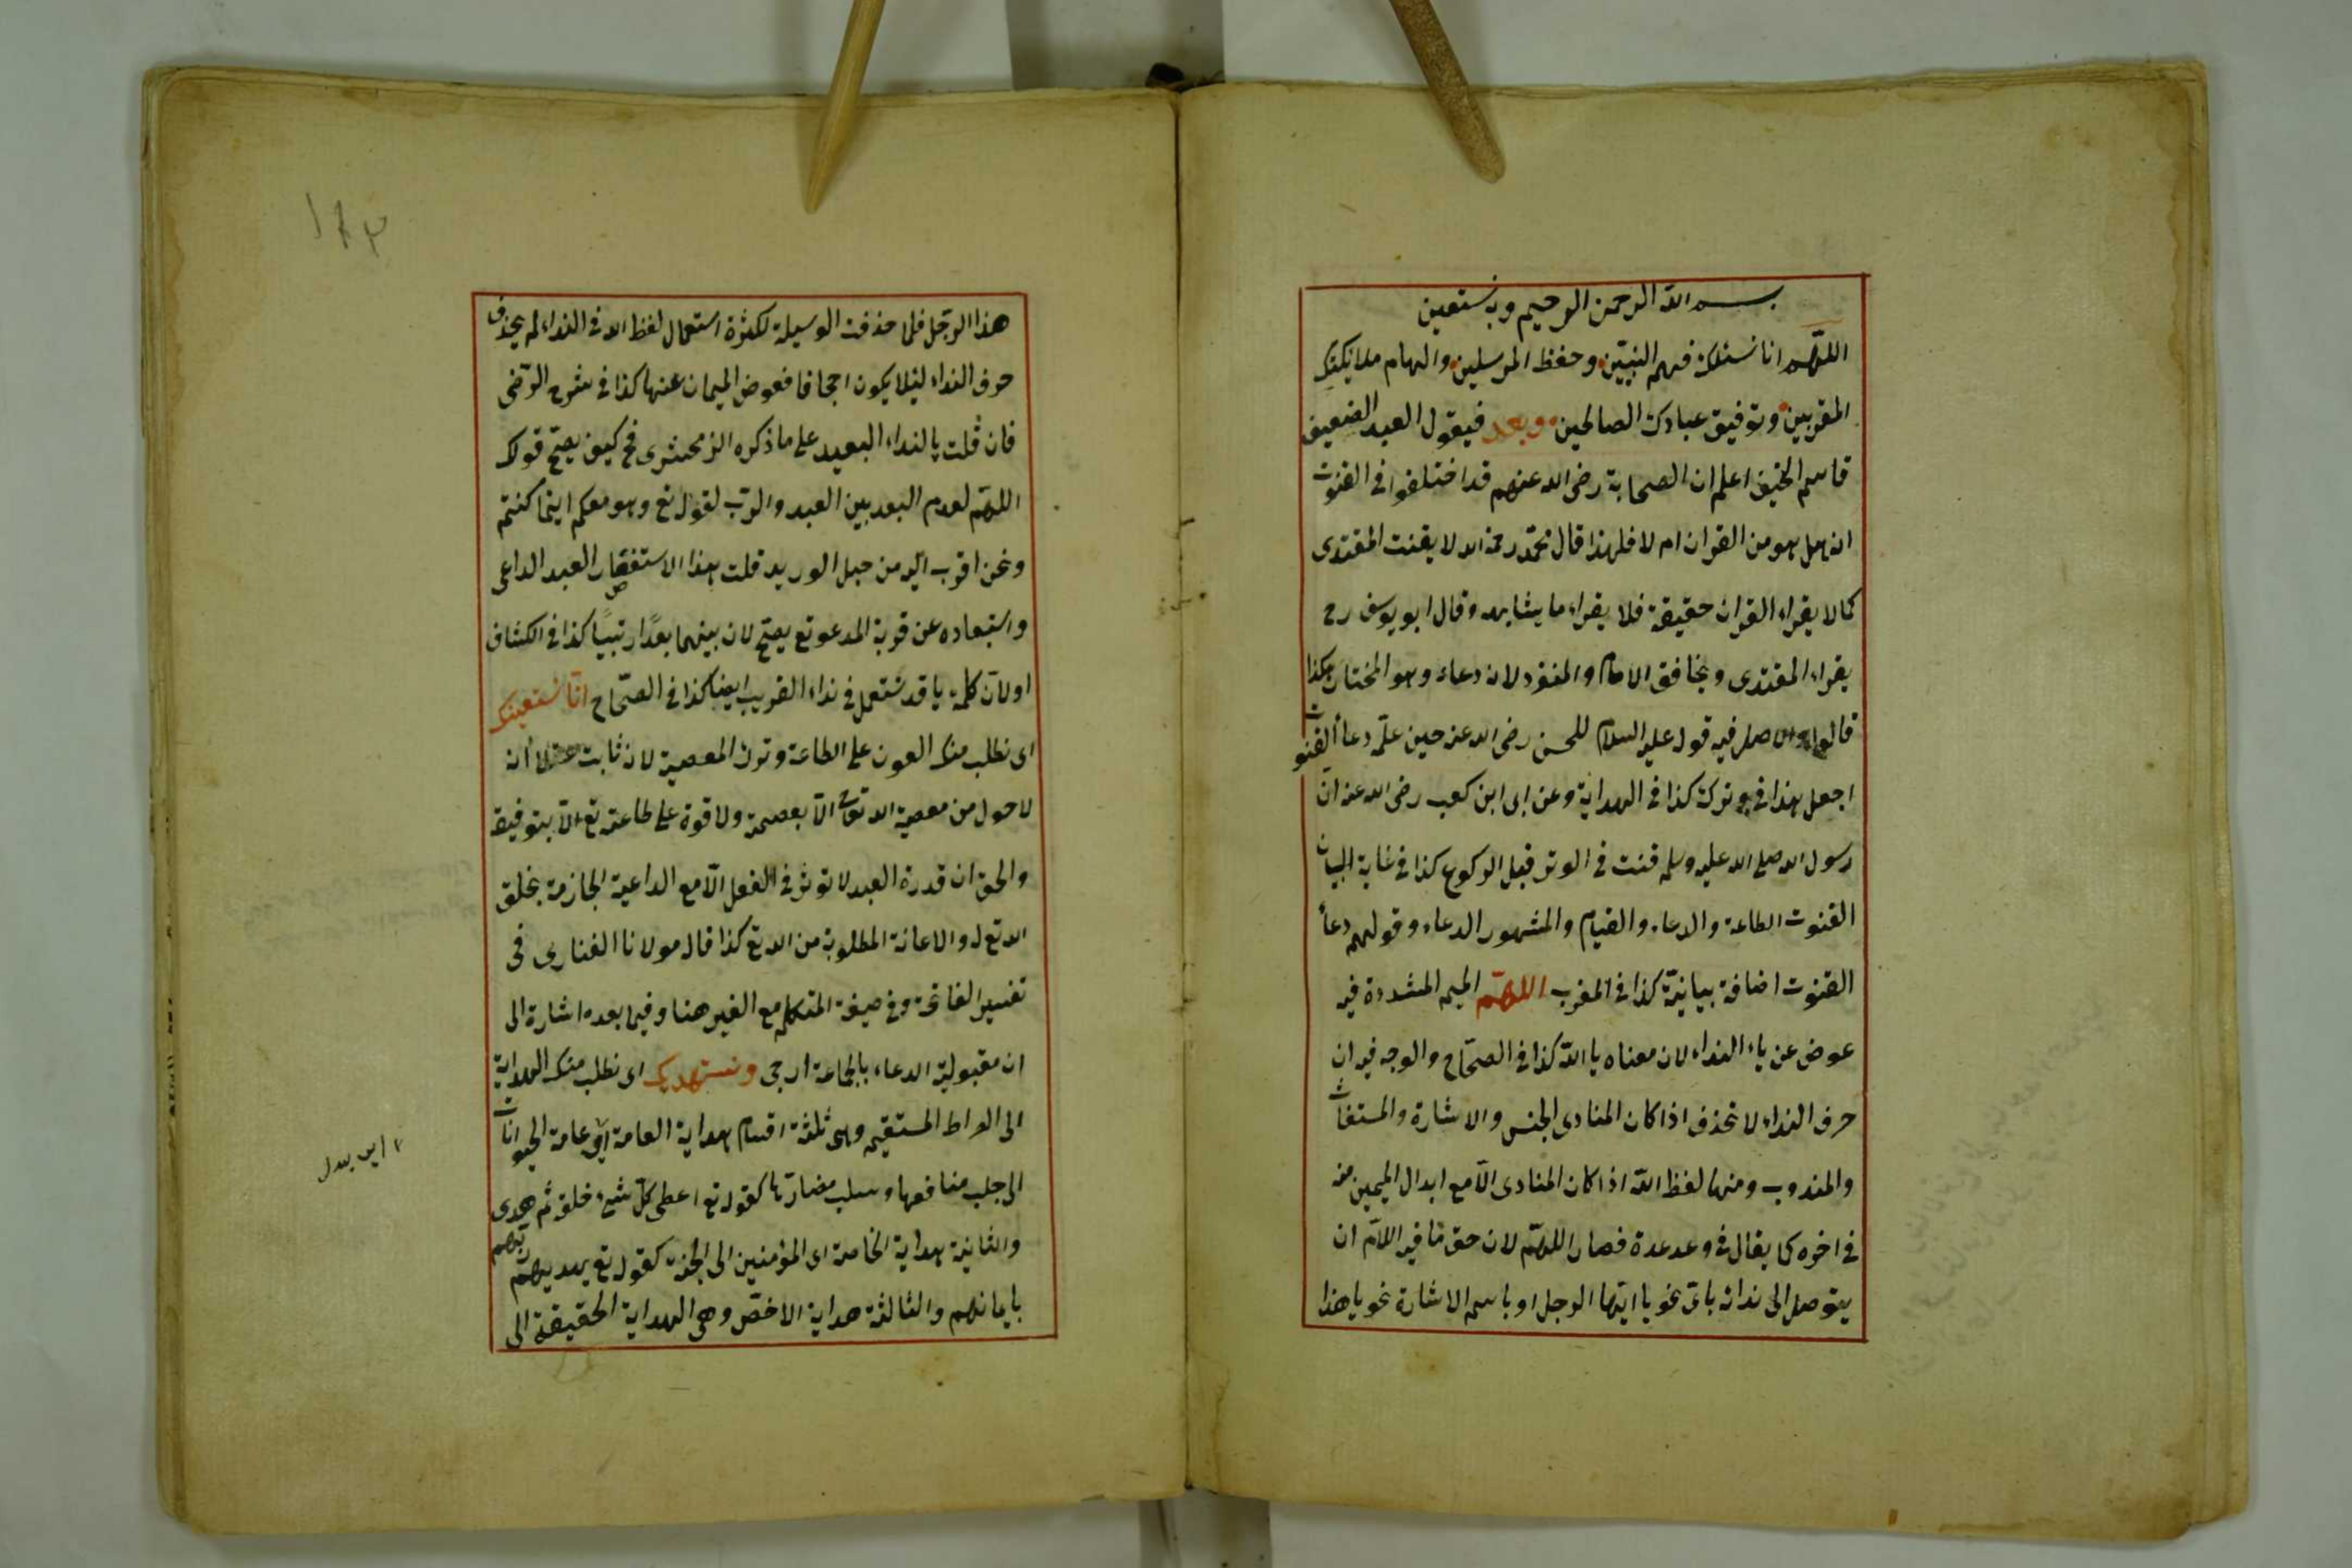 بسم الله الرحمن الرحيم وبه نستعين
اللهم انا نسئلك فهم النبيين وحفظ المرسلين والهام ملائكتك
المقربين وتوفيق عبادك الصالحين وبعد فيقول العبد الضعيف
قاسم الحنيفى اعلم ان الصحابة رضى الله عنهم قد اختلفوا فى القنوت
انه هل هو من القران ام لا فلهذا قال محمد رحمه الله لا يقنت المقتدى
كما لا يقراء القران حقيقة فلا يقراء ما يشابهه وقال ابو يوسف رح
يقراء المقتدى ويخافق الامام والمنفرد لانه دعاء وهو المختار هكذا
قالوا والاصل فيه قوله عليه السلام للحسن رضى الله عنه حين علمه دعأ القنوت
اجعل هذا فى وترك كذا فى الهداية وعن ابى ابن كعب رضى الله عنه ان
رسول الله صلى الله عليه وسلم قنت فى الوتر قبل الركوع كذا فى غاية البيان
القنوت الطاعة والدعاء والقيام والمشهور الدعاء وقولهم دعأ
القنوت اضافة بيانية كذا فى المغرب اللهم الميم المشددة فيه
عوض عن ياء النداء لان معناه يا الله كذا فى الصحاح والوجه فيه ان
حرف النداء لا تحذف اذا كان المنادى الجنس والاشارة والمستغاث
والمندوب ومنها لفظ الله اذا كان المنادى الا مع ابدال الميمين منه
فى اخره كما يقال فى وعد عدة فصار اللهم لان حق ما فيه اللام ان
يتوصل الى ندائه باى نحو يا ايها الرجل او باسم الاشارة نحو يا هذا
هذا الرجل فلما حذفت الوسيلة لكثرة استعمال لفظ الله فى النداء لم يحذف
حرف النداء لئلا يكون اجحافا فعوض الميمان عنها كذا فى شرح الرضى
فان قلت يا لنداء البعيد على ما ذكره الزمحشرى فح كيف يصح قولك
اللهم لعدم البعد بين العبد والرب لقوله تع وهو معكم اينما كنتم
ونحن اقرب اليه من حبل الوريد قلت هذا الاستقصار العبد الداعى
واستبعاده عن قربة المدعو تع يصح لان بينهما بعدًا رتبيًا كذا فى الكشاف
اولان كلمة يا قد تستعمل فى نداء القريب ايضا كذا فى الصحاح انا نستعينك
اى نطلب منك العون على الطاعة وترك المعصية لانه ثابت عقلا أنه
لا حول من معصية الله تعالى الا بعصمة ولا قوة على طاعته تع الا بتوفيقه
والحق ان قدرة العبد لا توثر فى الفعل الا مع الداعية الجازمة بخلق
الله تع له والاعانة المطلوبة من الله تع كذا قال مولانا الفنارى فى
تفسير الفاتحة وفى صيغة المتكلم مع الغير هنا وفيما بعده اشارة الى
ان مقبولية الدعاء بالجماعة ارجى ونستهديك اى نطلب منك الهداية
الى الصراط المستقيم وهى ثلثة اقسام هداية العامة اى عامة الحيوانات
الى جلب منافعها وسلب مضارها كقوله تع اعطى كل شىء خلقه ثم هدى
والثانية هداية الخاصة اى المؤمنين الى الجنة كقوله تع يهديهم ربهم
بايمانهم والثالثة هداية الاخص وهى الهداية الحقيقة الى